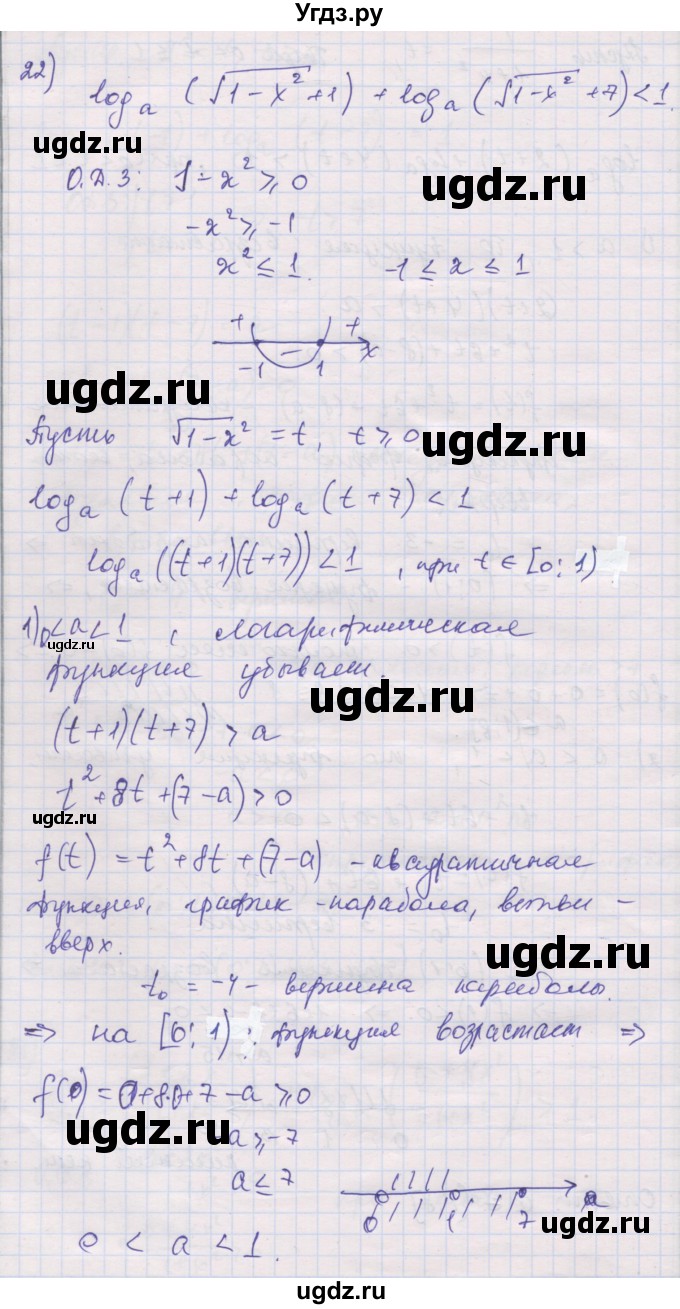 Угдз.ру
22) log_a (√(1-x²) + 1) + log_a (√(1-x²) + 7) < 1.
ugdz.ru
ugdz.ru
О.Д.З: 1 - x² ≥ 0
-x² ≥ -1
x² ≤ 1. -1 ≤ x ≤ 1
+ - + x
-1 1
ugdz.ru
Пусть √(1-x²) = t, t ≥ 0
ugdz.ru
log_a (t+1) + log_a (t+7) < 1
log_a ((t+1)(t+7)) < 1, при t ∈ [0; 1)
1) 0 < a < 1, логарифмическая
функция убывает.
ugdz.ru
(t+1)(t+7) > a
t² + 8t + (7-a) > 0
ugdz.ru
f(t) = t² + 8t + (7-a) - квадратичная
функция, график - парабола, ветви -
вверх.
ugdz.ru
t₀ = -4 - вершина параболы.
⇒ на [0; 1) функция возрастает ⇒
f(0) = 0+8·0+7-a ≥ 0
ugdz.ru
-a ≥ -7
a ≤ 7
0 1 7 a
ugdz.ru
0 < a < 1.
ugdz.ru